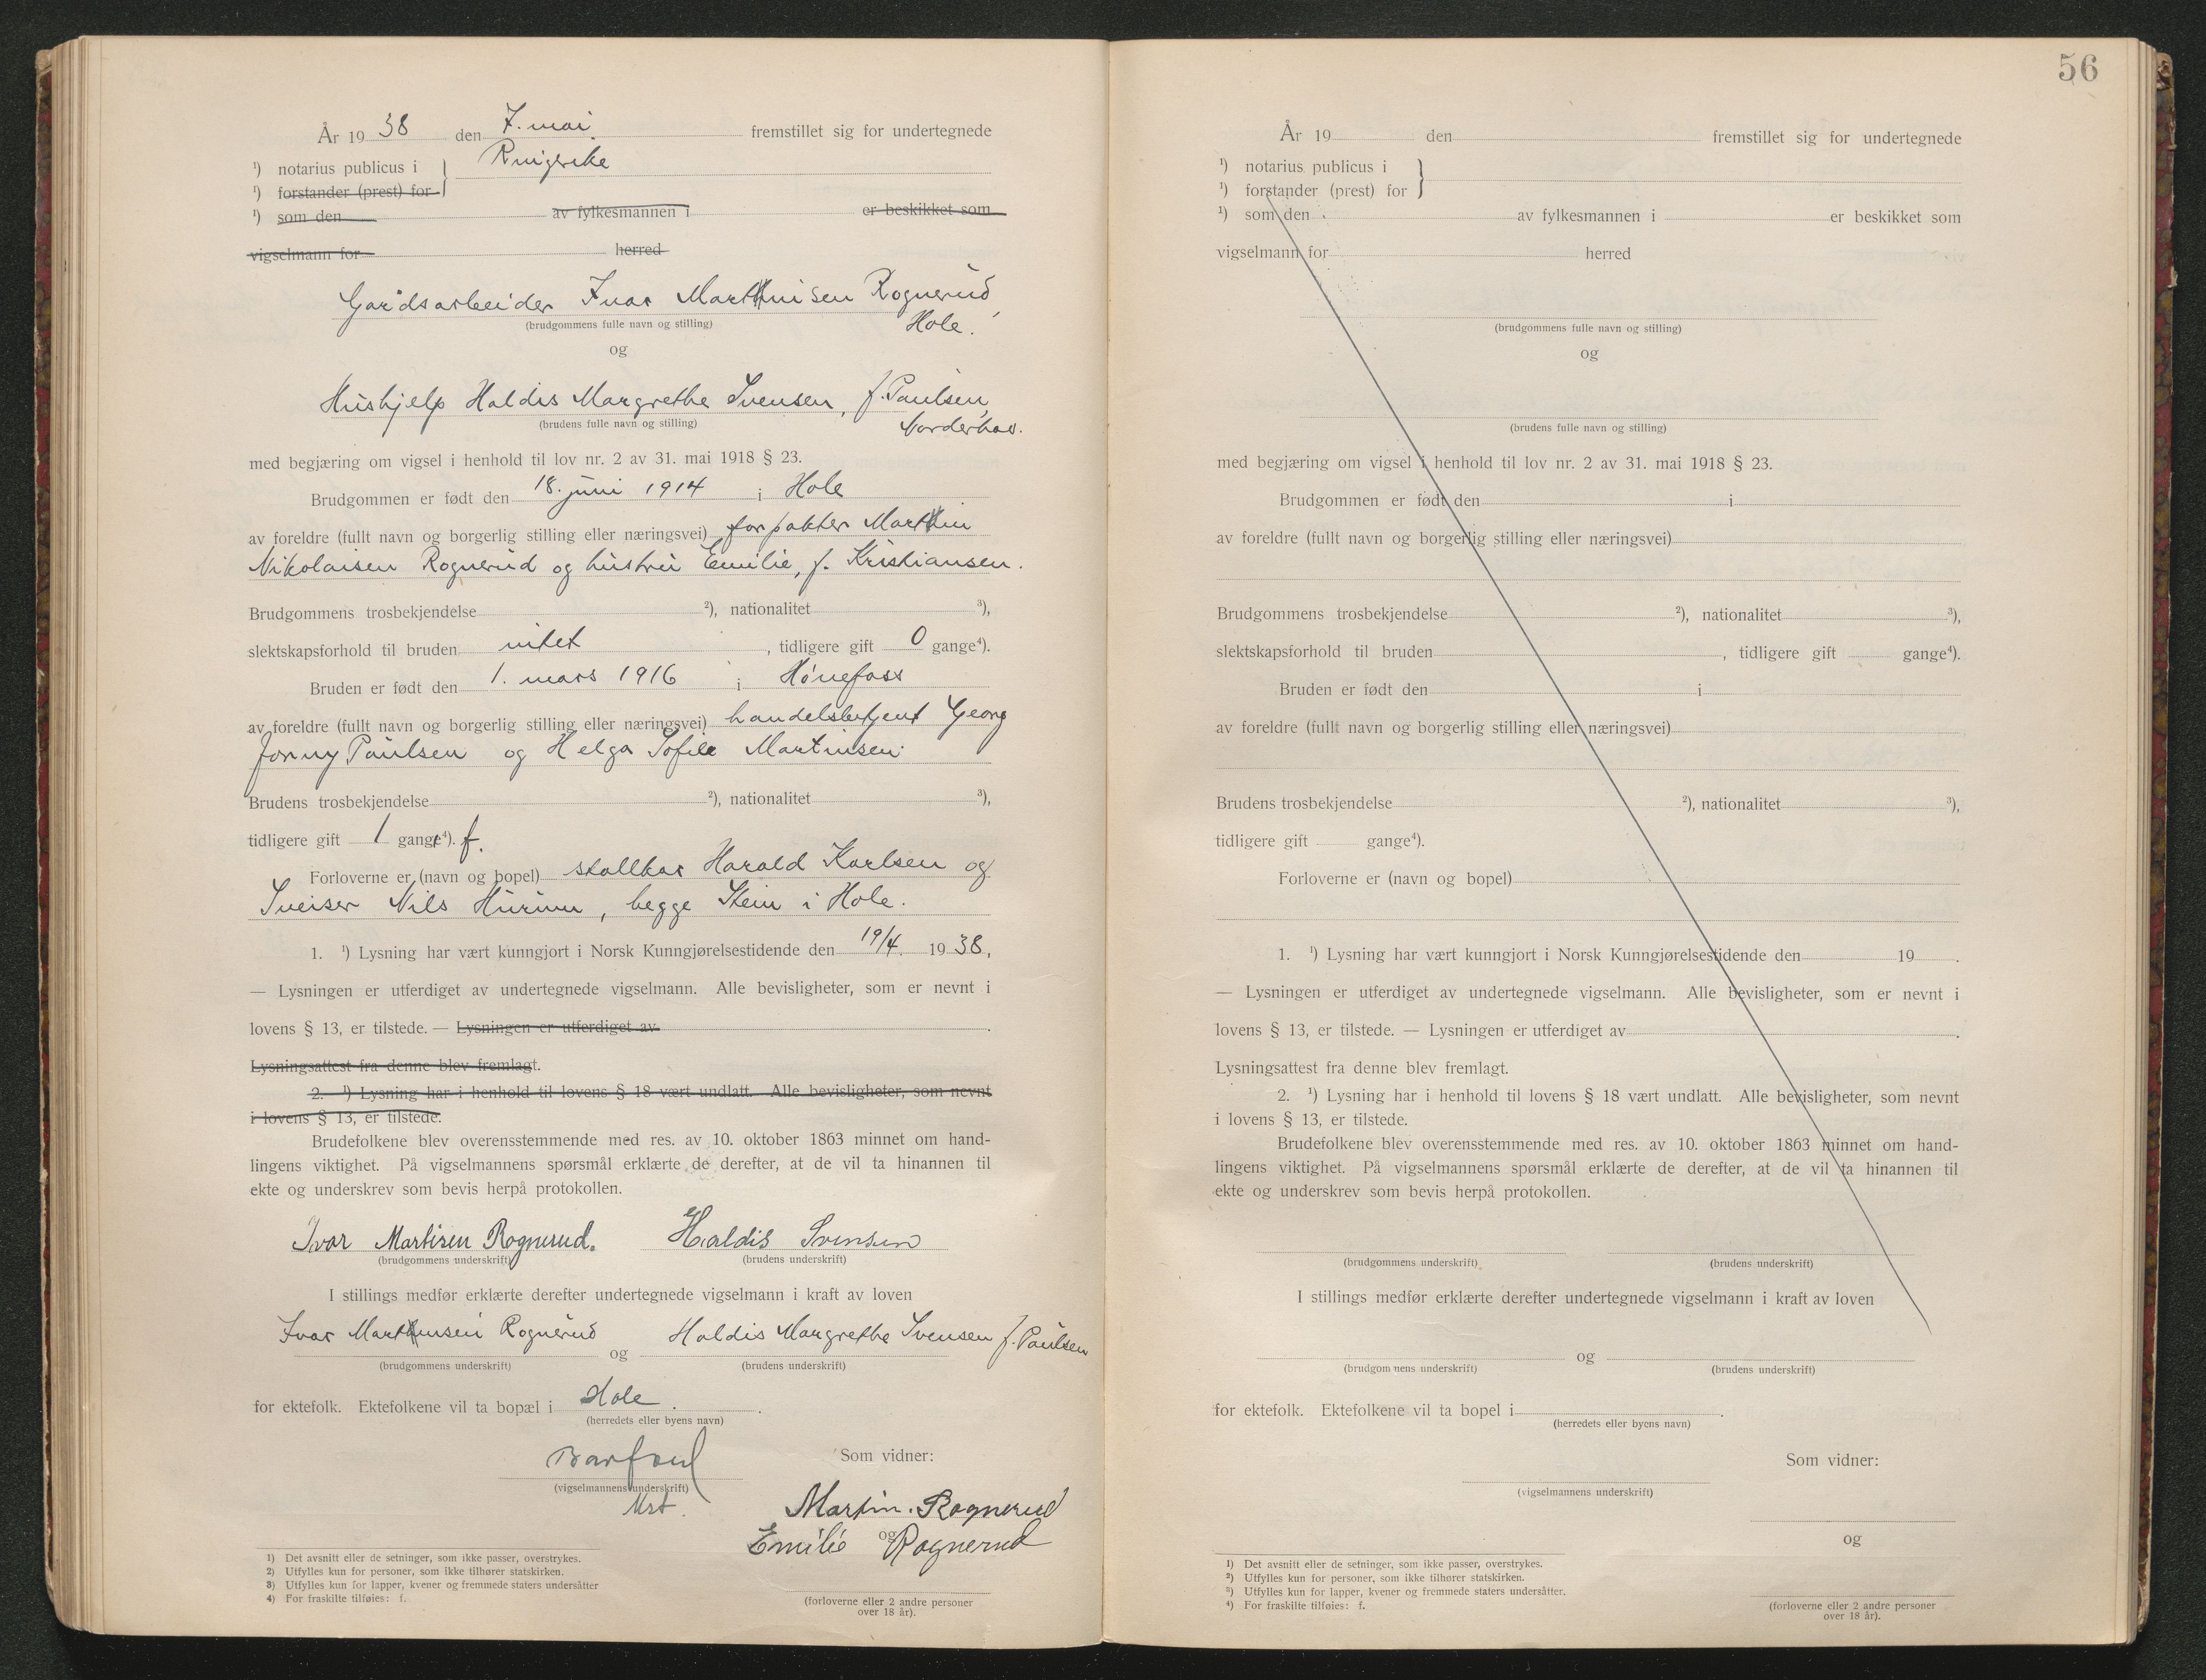 År 19 38 den 7. mai fremstillet sig for undertegnede
¹) notarius publicus i } Ringerike
¹) forstander (prest) for
¹) som den av fylkesmannen i er beskikket som
vigselmann for herred
Gardsarbeider Ivar Martinsen Rognerud,
(brudgommens fulle navn og stilling) Hole.
og
Hushjelp Haldis Margrethe Svensen, f. Paulsen,
(brudens fulle navn og stilling) Norderhov.
med begjæring om vigsel i henhold til lov nr. 2 av 31. mai 1918 § 23.
Brudgommen er født den 18. juni 1914 i Hole
av foreldre (fullt navn og borgerlig stilling eller næringsvei) forpakter Martin
Nikolaisen Rognerud og hustru Emilie, f. Kristiansen.
Brudgommens trosbekjendelse ²), nationalitet ³),
slektskapsforhold til bruden intet , tidligere gift 0 gange⁴).
Bruden er født den 1. mars 1916 i Hønefoss
av foreldre (fullt navn og borgerlig stilling eller næringsvei) handelsbetjent Georg
Jonny Paulsen og Helga Sofie Martinsen.
Brudens trosbekjendelse ²), nationalitet ³),
tidligere gift 1 gange⁴). f.
Forloverne er (navn og bopel) stallkar Harald Karlsen og
Sveiser Nils Hurum, begge Stein i Hole.
1. ¹) Lysning har vært kunngjort i Norsk Kunngjørelsestidende den 19/4. 19 38,
— Lysningen er utferdiget av undertegnede vigselmann. Alle bevisligheter, som er nevnt i
lovens § 13, er tilstede. — Lysningen er utferdiget av .
Lysningsattest fra denne blev fremlagt.
2. ¹) Lysning har i henhold til lovens § 18 vært undlatt. Alle bevisligheter, som nevnt
i lovens § 13, er tilstede.
Brudefolkene blev overensstemmende med res. av 10. oktober 1863 minnet om hand-
lingens viktighet. På vigselmannens spørsmål erklærte de derefter, at de vil ta hinannen til
ekte og underskrev som bevis herpå protokollen.
Ivar Martisen Rognerud. Haldis Svensen
(brudgommens underskrift) (brudens underskrift)
I stillings medfør erklærte derefter undertegnede vigselmann i kraft av loven
Ivar Martinsen Rognerud og Haldis Margrethe Svensen f. Paulsen
(brudgommens underskrift) (brudens underskrift)
for ektefolk. Ektefolkene vil ta bopæl i Hole.
(herredets eller byens navn)
Som vidner:
(vigselmannens underskrift)
Martin. Rognerud
og
Emilie Rognerud
(forloverne eller 2 andre personer
over 18 år).
1) Det avsnitt eller de setninger, som ikke passer, overstrykes.
2) Utfylles kun for personer, som ikke tilhører statskirken.
3) Utfylles kun for lapper, kvener og fremmede staters undersåtter
4) For fraskilte tilføies: f.
56
År 19 den fremstillet sig for undertegnede
¹) notarius publicus i }
¹) forstander (prest) for
¹) som den av fylkesmannen i er beskikket som
vigselmann for herred
(brudgommens fulle navn og stilling)
og
(brudens fulle navn og stilling)
med begjæring om vigsel i henhold til lov nr. 2 av 31. mai 1918 § 23.
Brudgommen er født den i
av foreldre (fullt navn og borgerlig stilling eller næringsvei)
Brudgommens trosbekjendelse ²), nationalitet ³),
slektskapsforhold til bruden , tidligere gift gange⁴).
Bruden er født den i
av foreldre (fullt navn og borgerlig stilling eller næringsvei)
Brudens trosbekjendelse ²), nationalitet ³),
tidligere gift gange⁴).
Forloverne er (navn og bopel)
1. ¹) Lysning har vært kunngjort i Norsk Kunngjørelsestidende den 19 .
— Lysningen er utferdiget av undertegnede vigselmann. Alle bevisligheter, som er nevnt i
lovens § 13, er tilstede. — Lysningen er utferdiget av .
Lysningsattest fra denne blev fremlagt.
2. ¹) Lysning har i henhold til lovens § 18 vært undlatt. Alle bevisligheter, som nevnt
i lovens § 13, er tilstede.
Brudefolkene blev overensstemmende med res. av 10. oktober 1863 minnet om hand-
lingens viktighet. På vigselmannens spørsmål erklærte de derefter, at de vil ta hinannen til
ekte og underskrev som bevis herpå protokollen.
(brudgommens underskrift) (brudens underskrift)
I stillings medfør erklærte derefter undertegnede vigselmann i kraft av loven
og
(brudgommens underskrift) (brudens underskrift)
for ektefolk. Ektefolkene vil ta bopel i .
(herredets eller byens navn)
Som vidner:
(vigselmannens underskrift)
og
(forloverne eller 2 andre personer
over 18 år).
¹) Det avsnitt eller de setninger, som ikke passer, overstrykes.
²) Utfylles kun for personer, som ikke tilhører statskirken.
³) Utfylles kun for lapper, kvener og fremmede staters undersåtter.
⁴) For fraskilte tilføies: f.